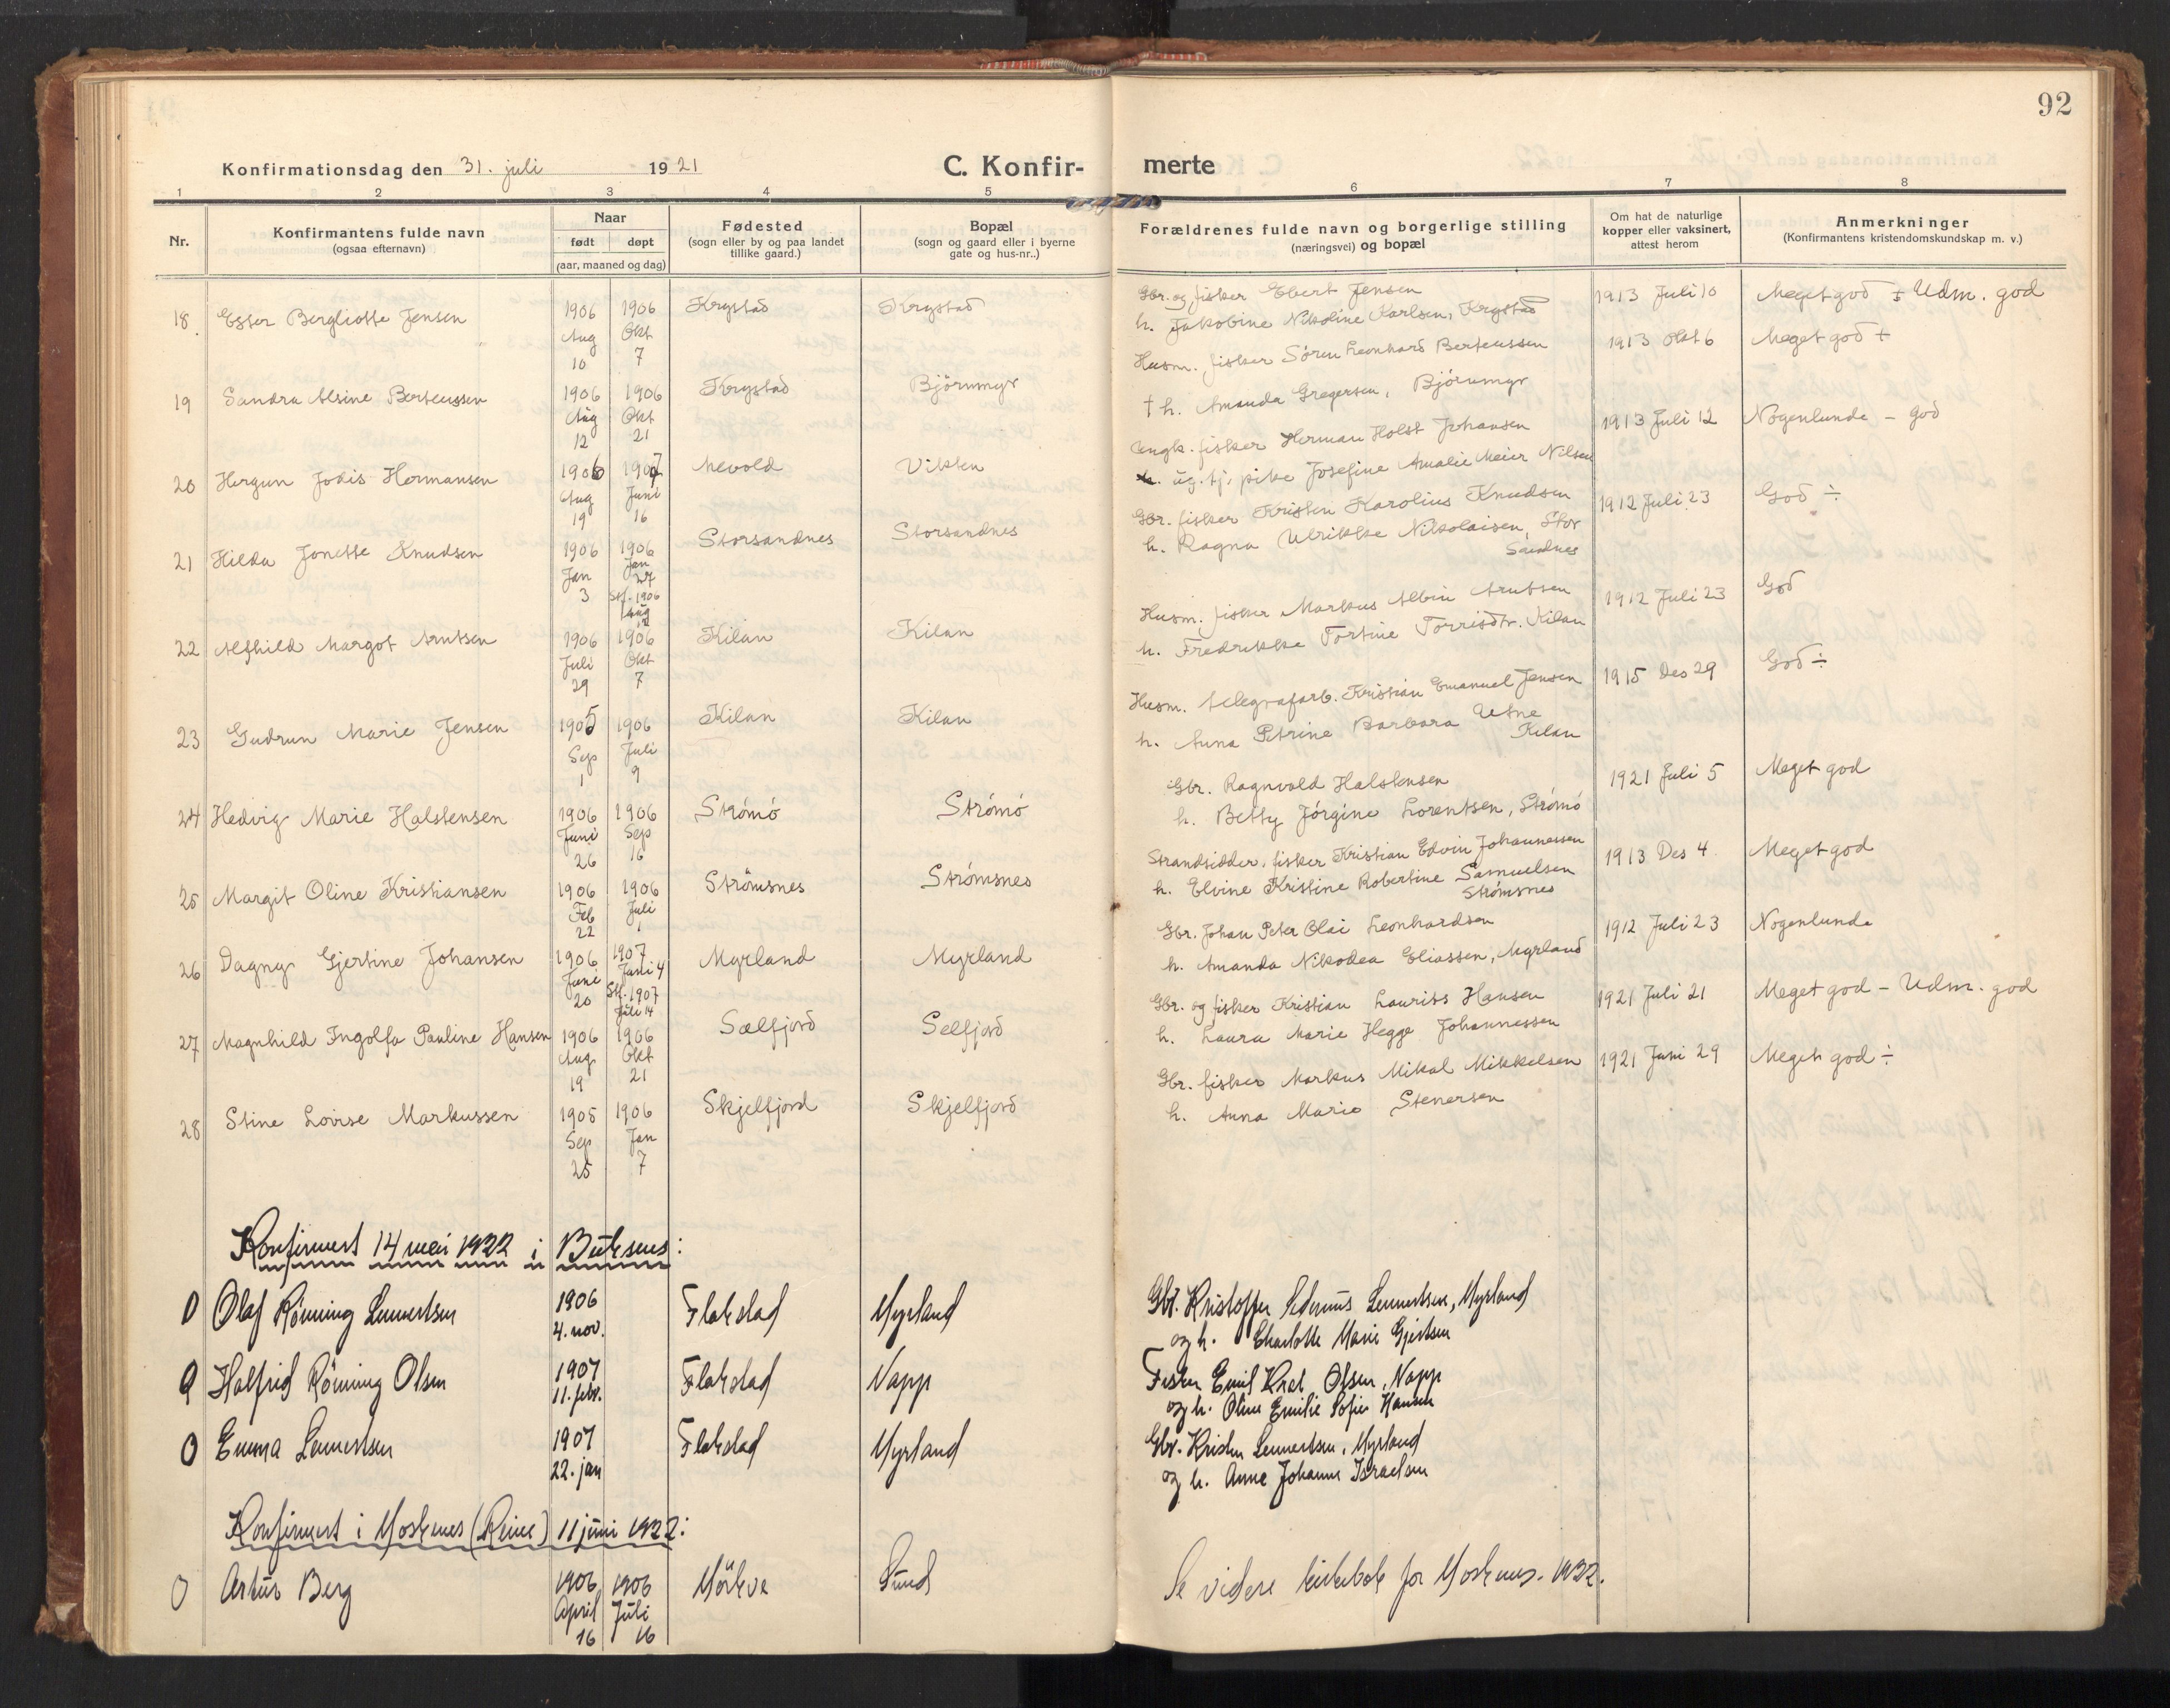 92
Konfirmationsdag den 31. juli 1921 C. Konfir- merte
1 2 3 4 5 6 7 8
Nr. Konfirmantens fulde navn (ogsaa efternavn) Naar født døpt (aar, maaned og dag) Fødested (sogn eller by og paa landet tillike gaard.) Bopæl (sogn og gaard eller i byerne gate og hus-nr..) Forældrenes fulde navn og borgerlige stilling (næringsvei) og bopæl Om hat de naturlige kopper eller vaksinert, attest herom Anmerkninger (Konfirmantens kristendomskundskap m. v.)
18 Ester Bergliotte Jensen 1906 Aug 10 1906 Okt 7 Krystad Krystad Gbr. og fisker Ebert Jensen 1913 Juli 10 Meget god ± Udm. god
h. Jakobine Nikoline Karlsen, Krystad
19 Sandra Alsine Berteussen 1906 Aug 12 1906 Okt 21 Krystad Björnmyr Husm. fisker Sören Leonhard Berteussen 1913 Okt 6 Meget god +
† h. Amanda Gregersen, Björnmyr
20 Hergun Jodis Hermansen 1906 Aug 19 1907 Juni 16 Nevold Vikten Ungk. fisker Herman Holst Johansen 1913 Juli 12 Nogenlunde - god
ug. tj. pike Josefine Amalie Meier Nilsen
21 Hilda Jonette Knudsen 1906 Jan 3 1906 Jan 27 Stf. 1906 Aug 12 Storsandnes Storsandnes Gbr. fisker Kristen Karolius Knudsen 1912 Juli 23 God ÷
h. Ragna Ulrikke Nikolaisen, Stor
Sandnes
22 Alfhild Margot Arntsen 1906 Juli 29 1906 Okt 7 Kilan Kilan Husm. fisker Markus Albin Arntsen 1912 Juli 23 God
h. Fredrikke Tortine Torrisdtr. Kilan
23 Gudrun Marie Jensen 1905 Sep 1 1906 Juli 9 Kilan Kilan Husm. telegrafarb. Kristian Emanuel Jensen 1915 Des 29 God ÷
h. Anna Petrine Barbara Utne
Kilan
24 Hedvig Marie Halstensen 1906 Juni 26 1906 Sep 16 Strömö Strömö Gbr. Ragnvald Halstensen 1921 Juli 5 Meget god
h. Betty Jörgine Lorentsen, Strömö
25 Margit Oline Kristiansen 1906 Feb 22 1906 Juli 1 Strömsnes Strömsnes Strandsidder, fisker Kristian Edvin Johannessen 1913 Des 4 Meget god
h. Elvine Kristine Robertine Samuelsen
Strömsnes
26 Dagny Gjertine Johansen 1906 Juni 20 1907 Juni 4 Stf. 1907 Juli 14 Myrland Myrland Gbr. Johan Peter Olai Leonhardsen 1912 Juli 23 Nogenlunde
h. Amanda Nikodea Eliassen, Myrland
27 Magnhild Ingolfa Pauline Hansen 1906 Aug 19 1906 Okt 21 Sælfjord Selfjord Gbr. og fisker Kristian Laurits Hansen 1921 Juli 21 Meget god - Udm. god
h. Laura Marie Hegge Johannessen
28 Stine Lovise Markussen 1905 Sep 25 1906 Jan 7 Skjelfjord Skjelfjord Gbr. fisker Markus Mikal Mikkelsen 1921 Juni 29 Meget god ÷
h. Anna Marie Stenersen
Konfirmert 14 mai 1922 i Buksnes:
0 Olaf Rönning Lennertsen 1906 4. nov. Flakstad Myrland Gbr. Kristoffer Lennertsen, Myrland
og h. Charlotte Marie Gjertsen
0 Halfrid Rönning Olsen 1907 11. febr. Flakstad Napp Fisker Emil Olsen, Napp
og h. Oline Emilie Sofie Hansen
0 Emma Lennertsen 1907 22. jan Flakstad Myrland Gbr. Kristen Lennertsen, Myrland
og h. Anne Johanne Israelsen
Konfirmert i Moskenes (Reine) 11 juni 1922:
0 Artur Berg 1906 April 16 1906 Juli 16 Mörkve Sund Se videre kirkebok for Moskenes. 1922.